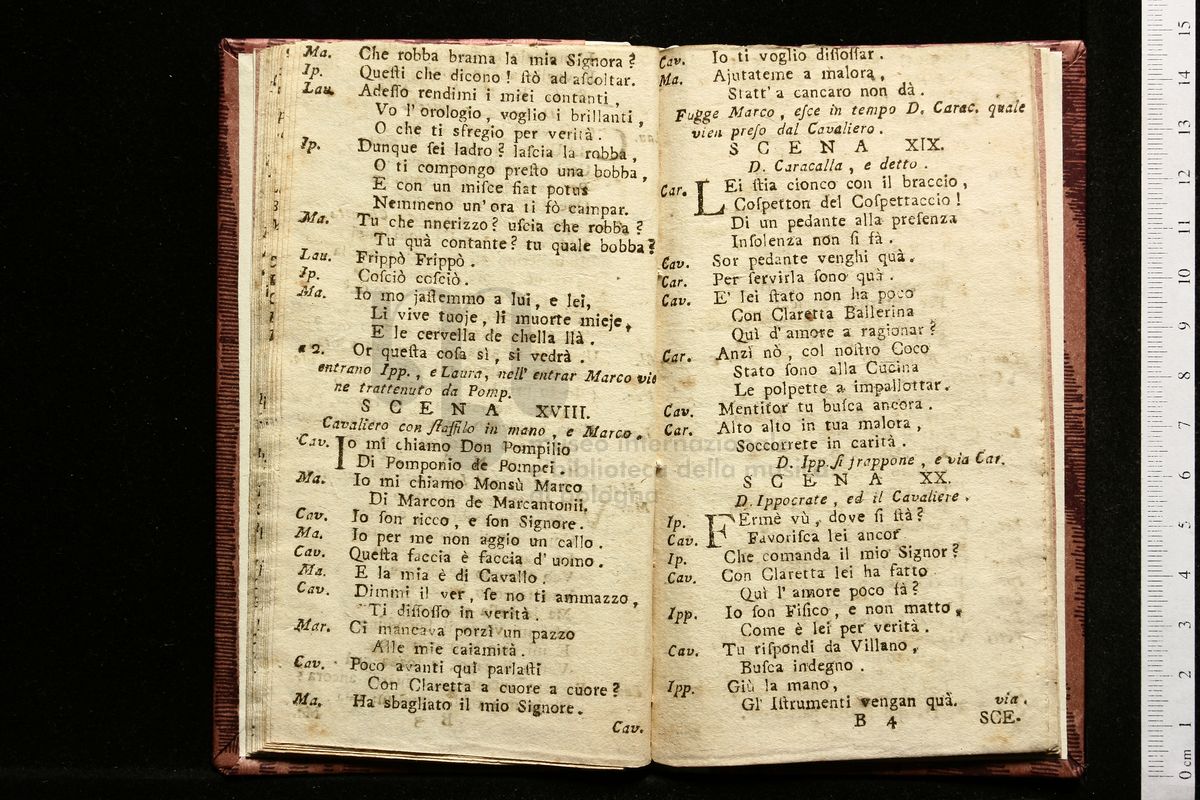 Ma. Che robba brama la mia Signora?
Ip. Queſti che dicono! ſtò ad aſcoltar.
Lau. Adeſſo rendimi i miei contanti,
Vo l'orologio, voglio i brillanti,
O che ti sfregio per verità.
Ip. Dunque ſei ladro? laſcia la robba,
O ti compongo preſto una bobba,
E con un miſce fiat potus
Nemmeno un'ora ti fò campar.
Ma. Tu che nnerizzo? uſcia che robba?
Tu quà contante? tu quale bobba?
Lau. Frippò Frippò.
Ip. Coſciò coſciò.
Ma. Io mo jaſtemmo a lui, e lei,
Li vive tuoje, li muorte mieje,
E le cervella de chella llà.
a 2. Or queſta coſa sì, si vedrà.
entrano Ipp., e Laura, nell' entrar Marco vie
ne trattenuto da Pomp.
SCENA XVIII.
Cavaliero con ſtaffilo in mano, e Marco.
Cav. Io mi chiamo Don Pompilio
Di Pomponio de Pompei.
Ma. Io mi chiamo Monsù Marco
Di Marcon de Marcantonii.
Cav. Io ſon ricco, e ſon Signore.
Ma. Io per me non aggio un callo.
Cav. Queſta faccia è faccia d'uomo.
Ma. E la mia è di Cavallo.
Cav. Dimmi il ver, ſe no ti ammazzo,
Ti diſſoſſo in verità.
Mar. Ci mancava porzì un pazzo
Alle mie calamità.
Cav. Poco avanti quì parlaſti
Con Claretta a cuore a cuore?
Ma. Ha sbagliato il mio Signore.
Cav.
Cav. Io ti voglio diſſoſſar.
Ma. Ajutateme a malora,
Statt' a cancaro non dà.
Fugge Marco, eſce in tempo D. Carac. quale
vien preſo dal Cavaliero.
SCENA XIX.
D. Caracalla, e detto.
Car. LEi ſtia cionco con il braccio,
Coſpetton del Coſpettaccio!
Di un pedante alla preſenza
Inſolenza non ſi fà.
Cav. Sor pedante venghi quà.
Car. Per ſervirla ſono quà.
Cav. E' lei ſtato non ha poco
Con Claretta Ballerina
Quì d'amore a ragionar?
Car. Anzi nò, col noſtro Coco
Stato ſono alla Cucina
Le polpette a impallottar.
Cav. Mentitor tu buſca ancora.
Car. Alto alto in tua malora,
Soccorrete in carità.
D. Ipp. ſi frappone, e via Car.
SCENA XX.
D. Ippocrate, ed il Cavaliere.
Ip. FErmè vù, dove ſi ſtà?
Cav. Favoriſca lei ancor
Ip. Che comanda il mio Signor?
Cav. Con Claretta lei ha fatto
Quì l'amore poco fà?
Ipp. Io ſon Fiſico, e non matto,
Come è lei per verità.
Cav. Tu riſpondi da Villano,
Buſca indegno.
Ipp. Giù la mano,
Gl' Iſtrumenti vengan quà. via.
B 4 SCE.
museo internazionale
e biblioteca della musica
di bologna
0 cm 1 2 3 4 5 6 7 8 9 10 11 12 13 14 15